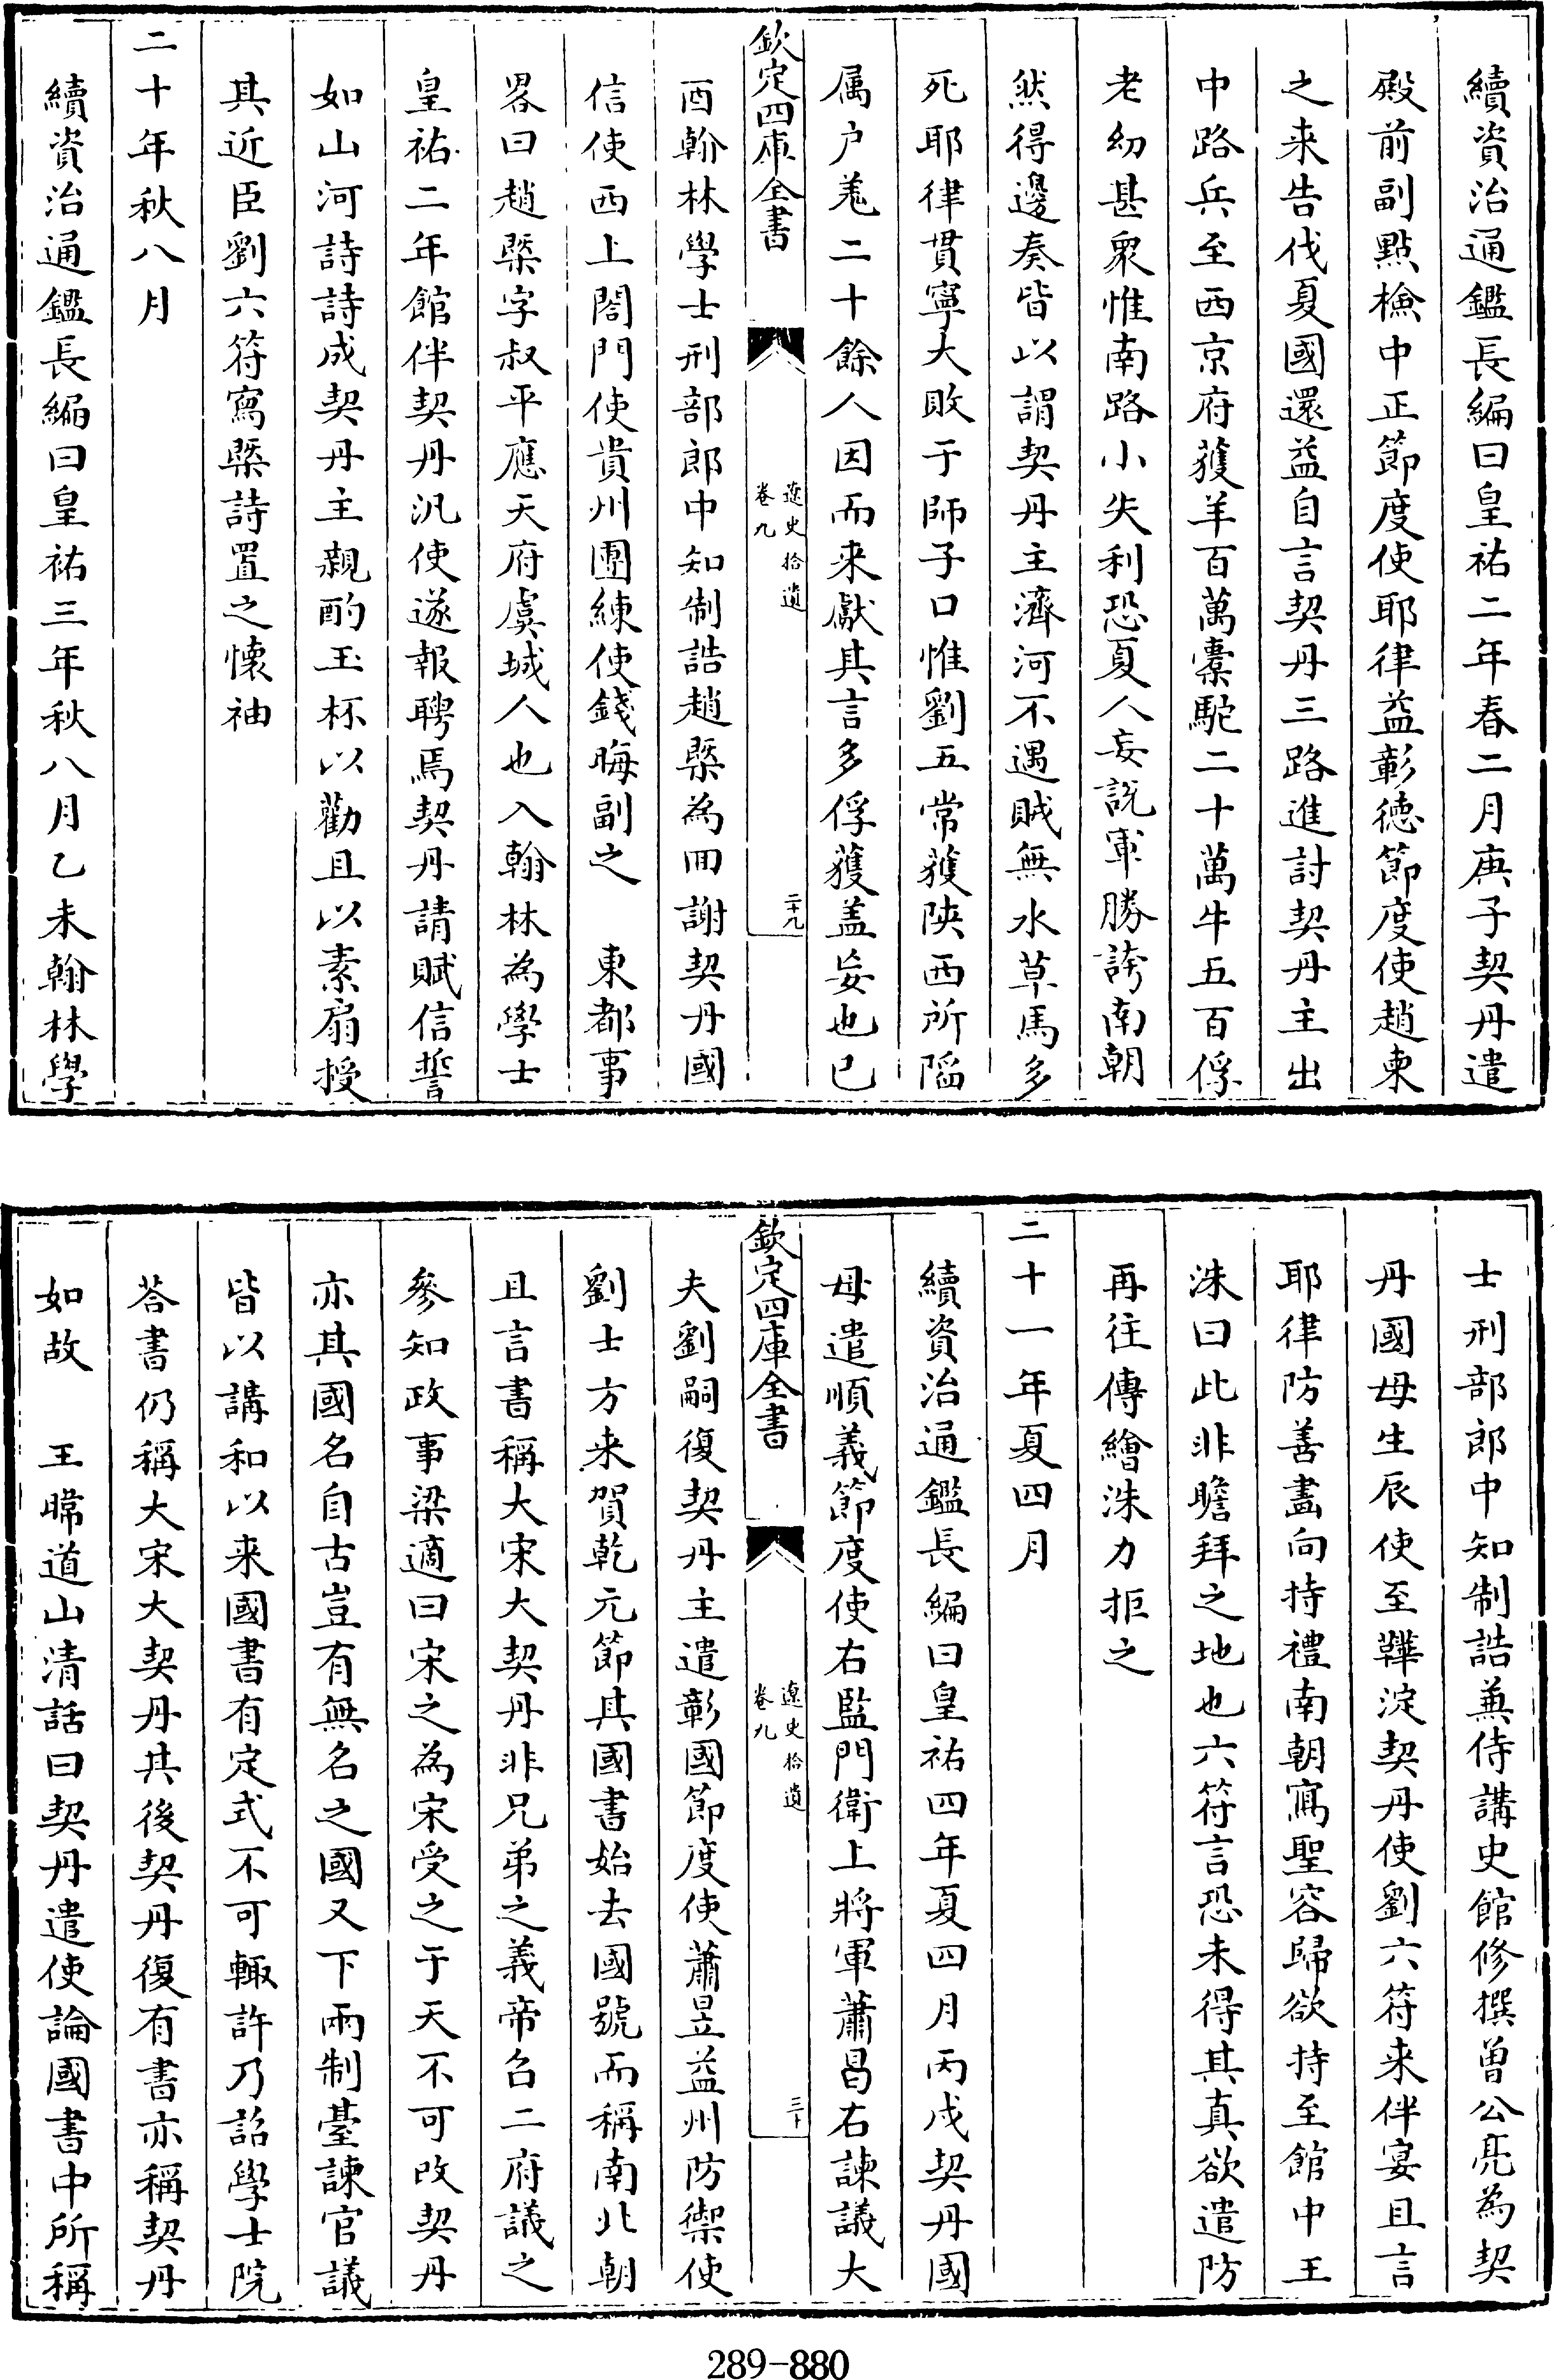 續資治通鑑長編曰皇祐二年春二月庚子契丹遣
殿前副㸃檢中正節度使耶律益彰徳節度使趙柬
之来告伐夏國還益自言契丹三路進討契丹主出
中路兵至西京府獲羊百萬橐駝二十萬牛五百俘
老幼甚衆惟南路小失利恐夏人妄說軍勝誇南朝
然得邊奏皆以謂契丹主濟河不遇賊無水草馬多
死耶律貫寧大敗于師子口惟劉五常獲陝西所陷
属户羌二十餘人因而来獻其言多俘獲盖妄也已
欽定四庫全書
遼史拾遺
卷九
二十九
酉翰林學士刑部郎中知制誥趙槩為回謝契丹國
信使西上閤門使貴州團練使錢晦副之　東都事
畧曰趙槩字叔平應天府虞城人也入翰林為學士
皇祐二年館伴契丹汎使遂報聘焉契丹請賦信誓
如山河詩詩成契丹主親酌玉杯以勸且以素扇授
其近臣劉六符寫槩詩置之懷袖
二十年秋八月
續資治通鑑長編曰皇祐三年秋八月乙未翰林學
士刑部郎中知制誥兼侍講史館修撰曽公亮為契
丹國母生辰使至鞾淀契丹使劉六符来伴宴且言
耶律防善畫向持禮南朝寫聖容歸欲持至館中王
洙曰此非瞻拜之地也六符言恐未得其真欲遣防
再往傳繪洙力拒之
二十一年夏四月
續資治通鑑長編曰皇祐四年夏四月丙戌契丹國
母遣順義節度使右監門衛上將軍蕭昌右諫議大
欽定四庫全書
遼史拾遺
卷九
三十
夫劉嗣復契丹主遣彰國節度使蕭昱益州防禦使
劉士方来賀乾元節其國書始去國號而稱南北朝
且言書稱大宋大契丹非兄弟之義帝召二府議之
參知政事梁適曰宋之為宋受之于天不可改契丹
亦其國名自古豈有無名之國又下兩制臺諫官議
皆以講和以来國書有定式不可輙許乃詔學士院
荅書仍稱大宋大契丹其後契丹復有書亦稱契丹
如故　王暐道山清話曰契丹遣使論國書中所稱
289-880